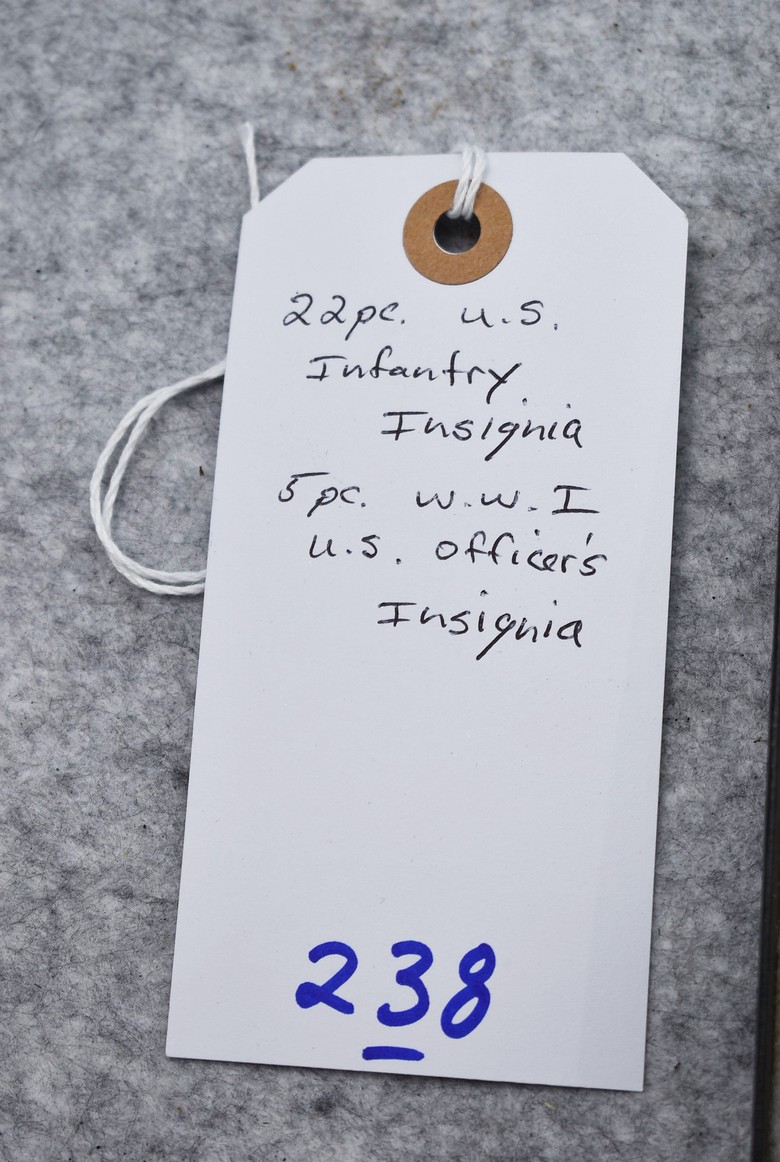 22pc. U.S.
Infantry
Insignia
5pc. W.W.I
U.S. Officer's
Insignia
238